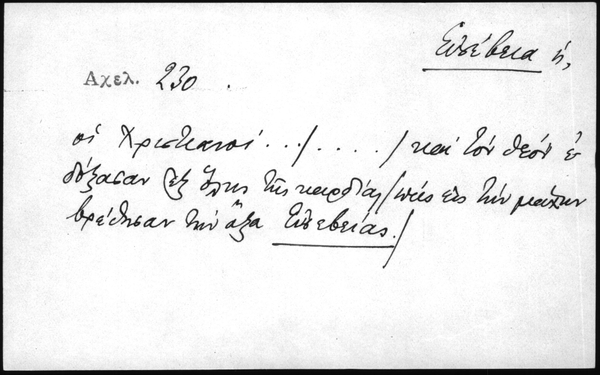 Εὐσέβεια ἡ,
Αχελ. 230.
οἱ Χριστιανοί .../..../ καὶ τὸν θεὸν ἐ-
δόξασαν ἐξ ὅλης τῆς καρδίας/ πῶς εἰς τὴν μάχην
βρέθησαν τὴν ἄξα Εὐσεβείας./